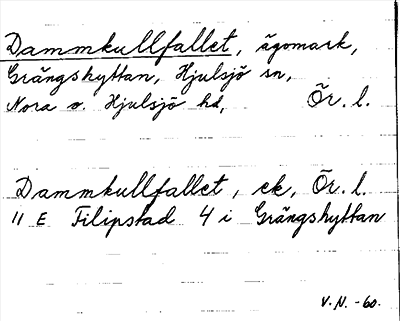 Dammkullfallet, ägomark,
Grängshyttan, Hjulsjö sn,
Nora o. Hjulsjö hd, Ör. l.
Dammkullfallet, ek, Ör. l.
11 E Filipstad 4 i Grängshyttan
V. N. -60.